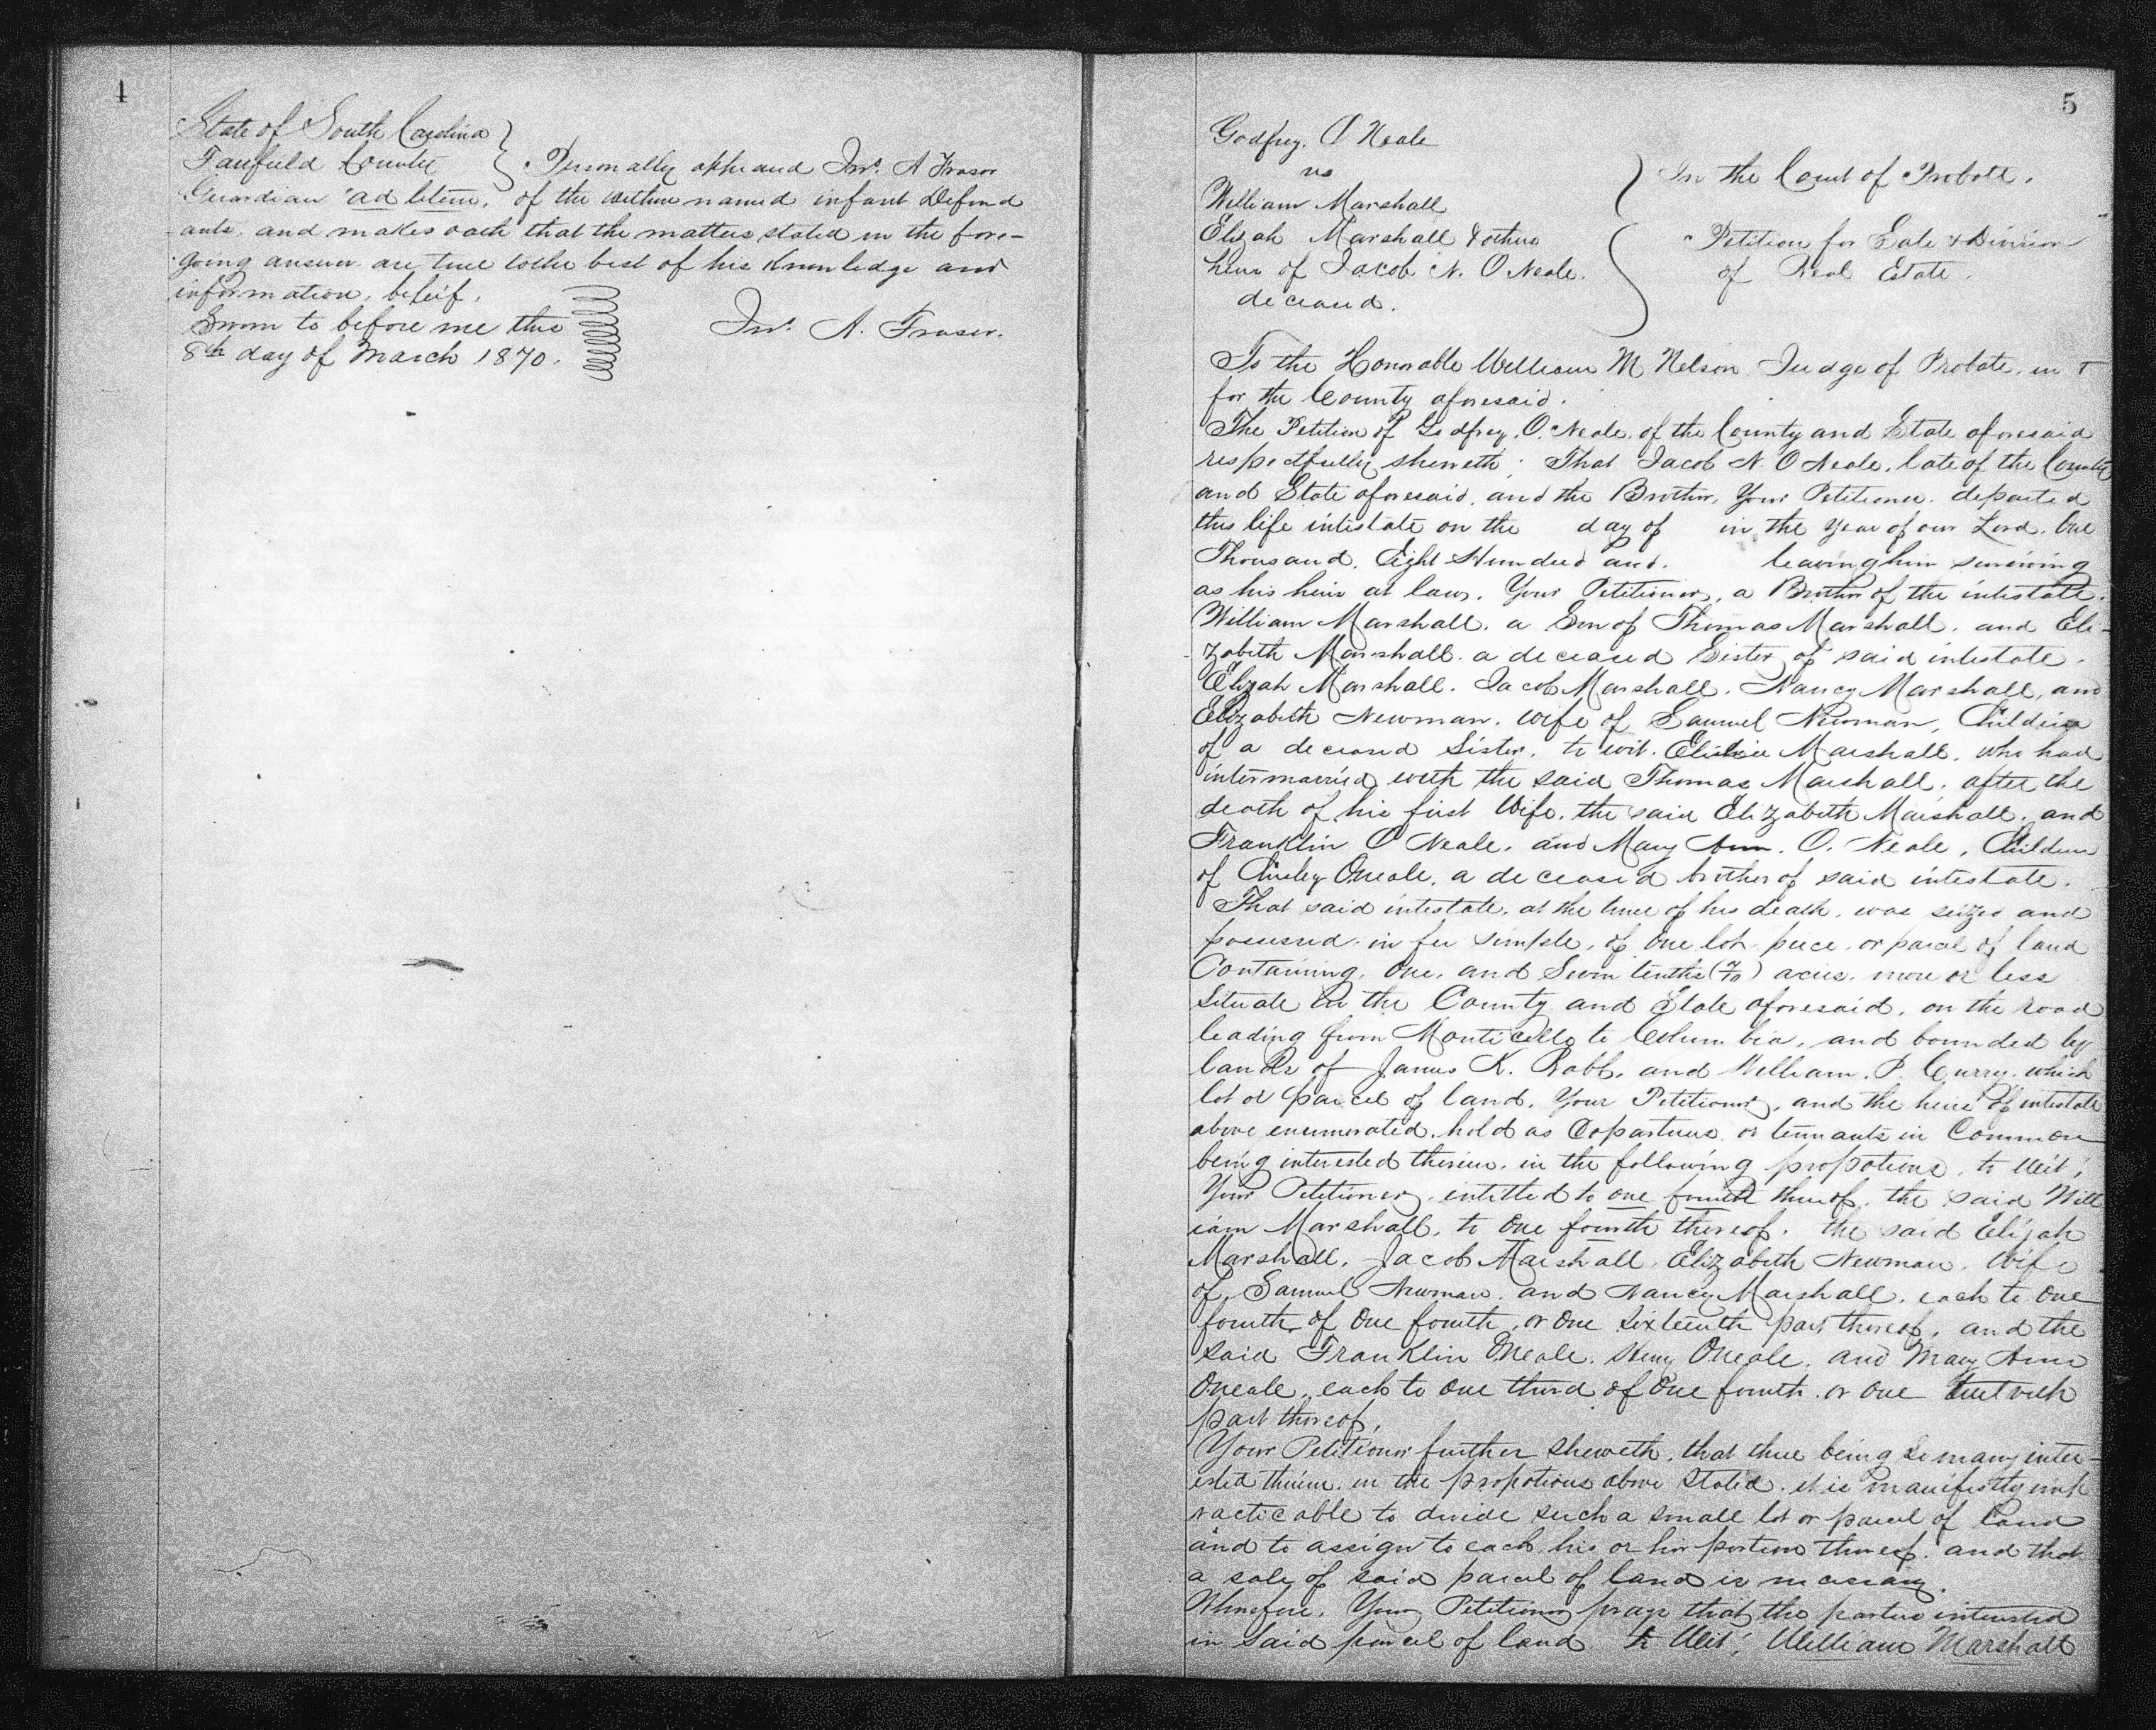 4
State of South Carolina
Fairfield County Personally appeared Jno. A Fraser
Guardian ad litem, of the within named infant Defend
ants, and makes oath that the matters stated in the fore-
going answer are true to the best of his Knowledge and
information, beleif.
Sworn to before me this
8th day of March 1870.
Jno. A. Fraser.
5
Godfrey. O Neale
vs
William Marshall
Elijah Marshall & others
heirs of Jacob N. O Neale.
deceased.
In the Court of Probate.
Petition for Sale & Division
of Real Estate.
To the Honorable William M Nelson Judge of Probate, in &
for the County aforesaid.
The Petition of Godfrey. O. Neale. of the County and State aforesaid
respectfully sheweth: That Jacob N. O Neale, late of the County
and State aforesaid, and the Brother, Your Petitioner. departed
this life intestate on the day of in the Year of our Lord. One
Thousand, Eight Hundred and. leaving him surviving
as his heirs at law. Your Petitioner, a Brother of the intestate.
William Marshall. a Son of Thomas Marshall. and Eli-
zabeth Marshall. a deceased Sister of said intestate.
Elijah Marshall. Jacob Marshall. Nancy Marshall, and
Elizabeth Newman. wife of Samuel Newman, Children
of a deceased Sister, to wit. Marshall, who had
intermarried with the said Thomas Marshall, after the
death of his first Wife. the said Elizabeth Marshall. and
Franklin O Neale. and Mary Ann. O. Neale, Children
of Oneale, a deceased brother of said intestate.
That said intestate, at the time of his death, was seized and
possessed in fee simple, of one lot piece or parcel of land
Containing, One, and Seven tenths (7/10) acres, more or less
Situate in the County and State aforesaid, on the road
leading from Monticello to Columbia, and bounded by
lands of James K. Robb, and William. P. Curry. which
lot or parcel of land, Your Petitioner, and the heirs of intestate
above enumerated. hold as Copartners or tennants in Common
being interested therein. in the following propotions, to Wit;
Your Petitioner, intitled to one fourth thereof. the said Will
iam Marshall, to One fourth thereof. the said Elijah
Marshall, Jacob Marshall, Elizabeth Newman. Wife
of Samuel Newman. and Nancy Marshall. each to One
fourth of One fourth, or One Sixteenth part thereof, and the
said Franklin ONeale. Henry Oneale, and Mary Ann
Oneale, each to one third of One fourth. or one twelveth
part thereof.
Your Petitioner further Sheweth, that there being so many inter-
ested therein in the propotions above Stated, it is manifestly imp
racticable to divide such a small lot or parcel of Land
and to assign to each his or her portion thereof. and that
a sale of said parcel of land is necessary.
Wherefore, Your Petitioner prays that the parties interested
in said parcel of land to Wit; William Marshall